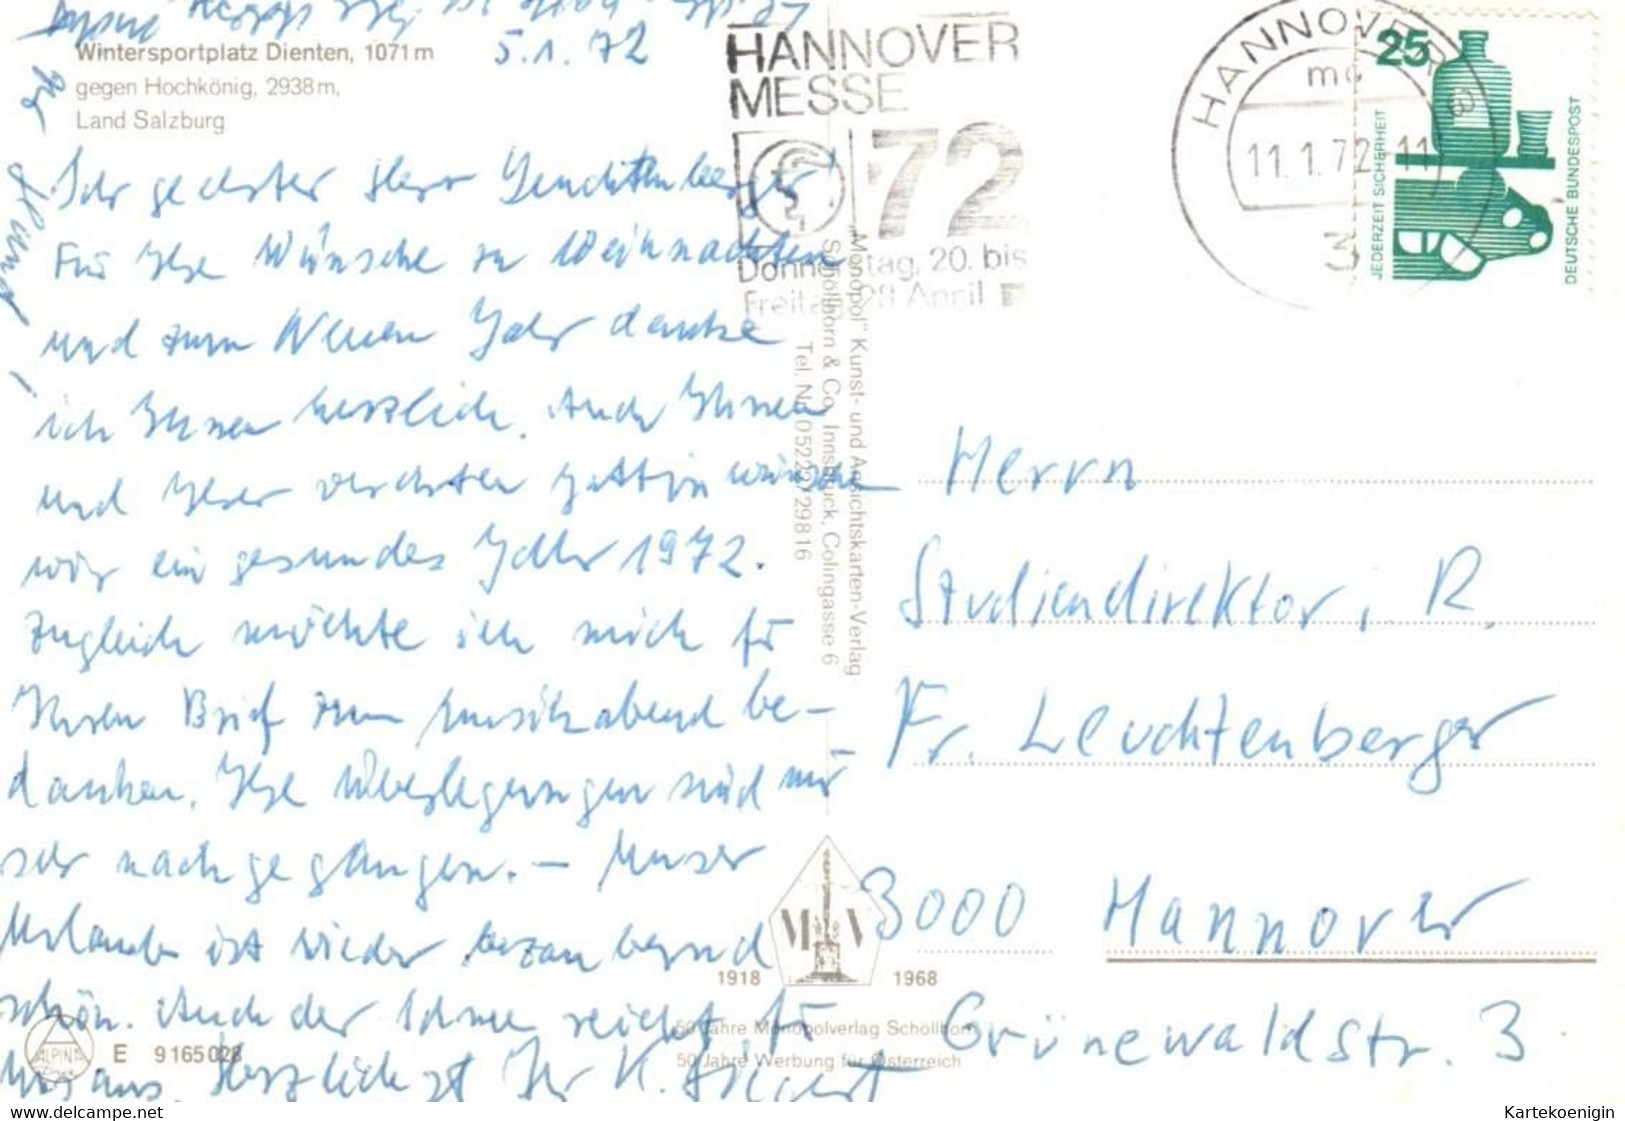 5.1.72
Wintersportplatz Dienten, 1071 m
gegen Hochkönig, 2938 m,
Land Salzburg
Sehr geehrter Herr Leuchtenberger!
Für Ihre Wünsche zu Weihnachten
und zum Neuen Jahr danke
ich Ihnen herzlich. Auch Ihnen
und Ihrer verehrten Gattin wünschen
wir ein gesundes Jahr 1972.
Zugleich möchte ich mich für
Ihren Brief zum Musikabend be-
danken. Ihre Überlegungen sind mir
sehr nachgegangen. – Unser
Urlaub ist wieder bezaubernd
schön. Auch der Schnee reicht für
uns aus. Herzlichst Ihr K.
ALPINA
E 9165028
HANNOVER
MESSE
72
Donnerstag, 20. bis
Freitag, 28. April
HANNOVER
11.1.72-11
3
25
JEDERZEIT SICHERHEIT
DEUTSCHE BUNDESPOST
„Monopol" Kunst- und Ansichtskarten-Verlag
Schöllhorn & Co., Innsbruck, Colingasse 6
Tel. Nr. 05222/29816
Herrn
Studiendirektor i. R.
Fr. Leuchtenberger
3000 Hannover
Grünewaldstr. 3
M V
1918 1968
50 Jahre Monopolverlag Schöllhorn
50 Jahre Werbung für Österreich
www.delcampe.net
Kartekoenigin